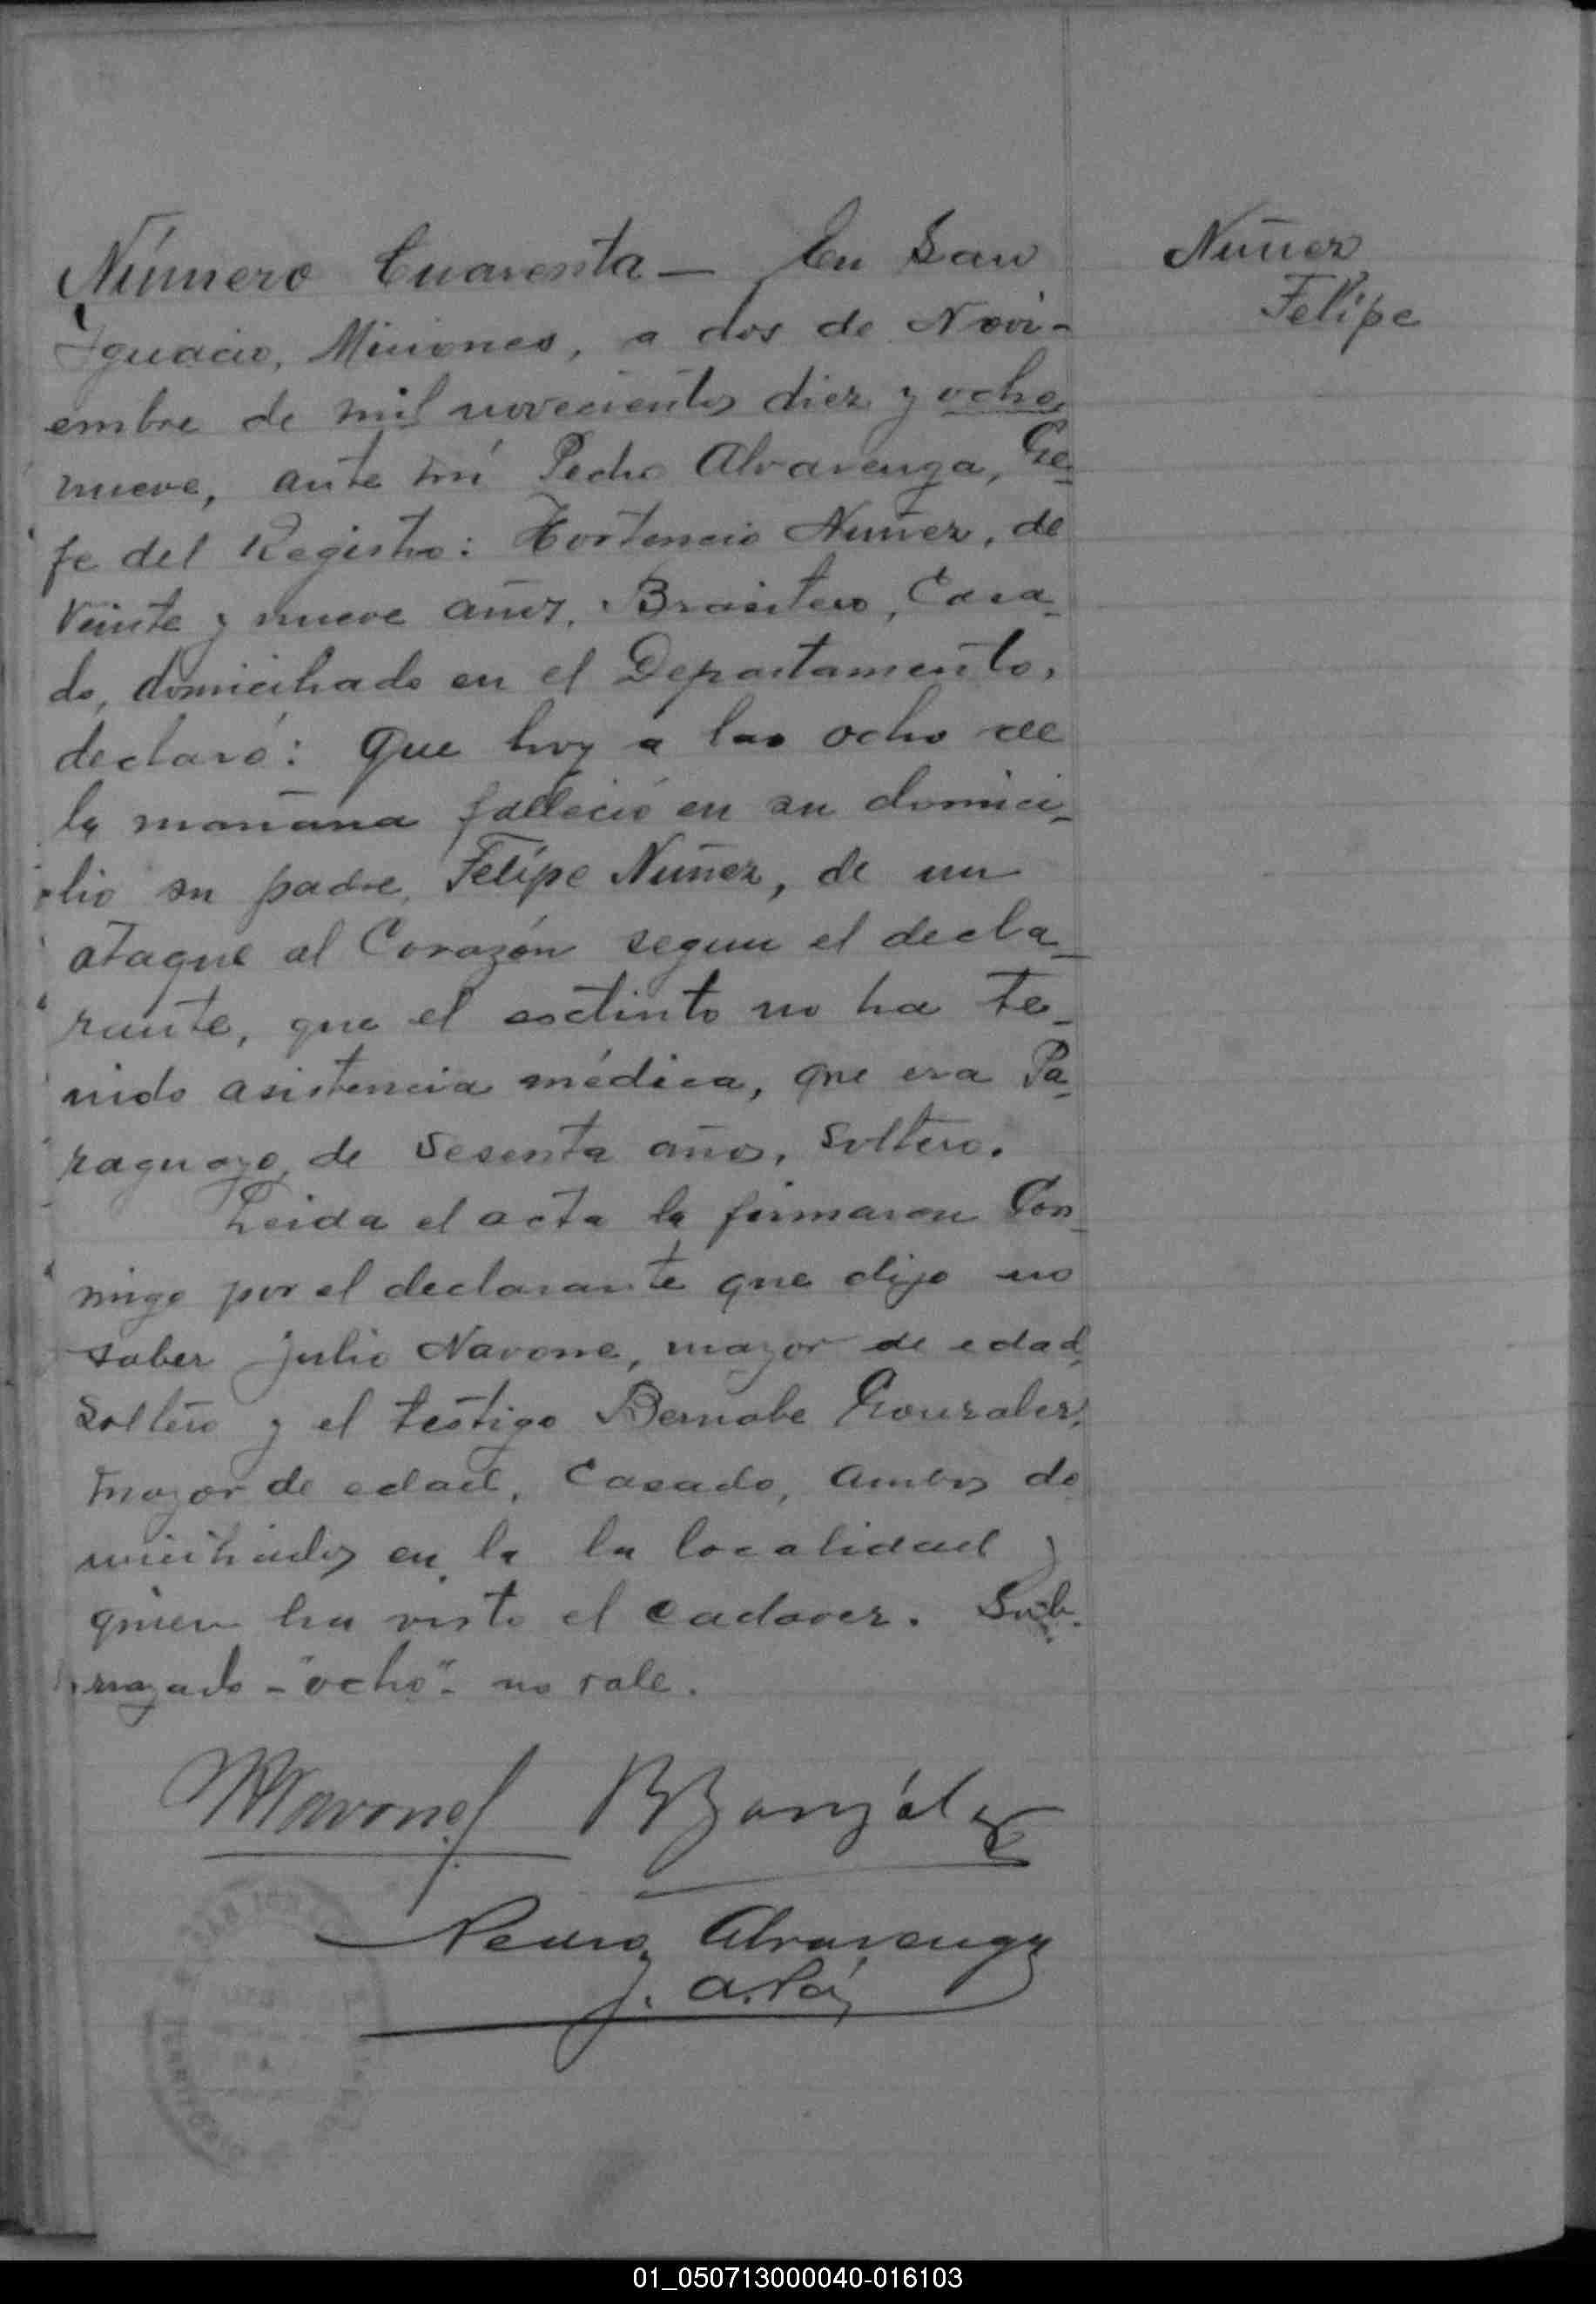 Número Cuarenta — En San
Ignacio, Misiones, a dos de Novi-
embre de mil novecientos diez y ocho,
nueve, ante mí Pedro Alvarenga, Ge-
fe del Registro: Hortencio Nuñez, de
veinte y nueve años, Brasilero, Casa-
do, domiciliado en el Departamento,
declaró: Que hoy a las ocho de
la mañana falleció en su domici-
lio su padre, Felipe Nuñez, de un
ataque al Corazón segun el decla-
rante, que el extinto no ha te-
nido asistencia médica, que era Pa-
raguayo, de sesenta años, soltero.
Leida el acta la firmaron Con-
migo por el declarante que dijo no
saber Julio Navone, mayor de edad,
soltero y el testigo Bernabe Gonzalez,
mayor de edad, Casado, ambos do
miciliados en la la localidad y
quien ha visto el cadaver. Sub-
rrayado - "ocho" - no vale.
Nuñez
Felipe
Navone
B Gonzálz
Pedro Alvarenga
J.
01_050713000040-016103